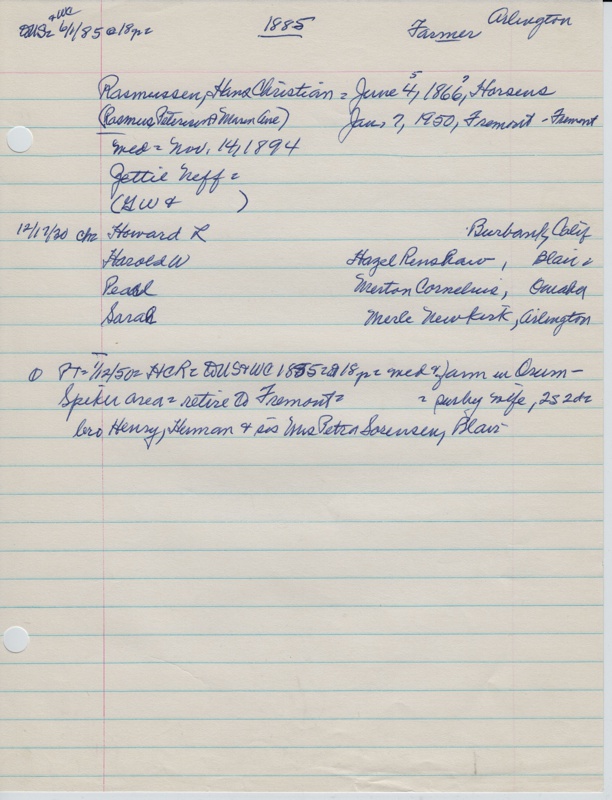 & WC 1885 Arlington
DUS = 6/1/85 @ 18 p = Farmer
Rasmussen, Hans Christian = June 4, 5 1866?, Horsens
(Rasmus Peterson & Maren Line) Jan 7, 1950, Fremont - Fremont
med = Nov. 14, 1894
Jettie Neff =
(G W & )
12/17/30 ch = Howard R Burbank, Calif
Harold W Hazel Renshaw, Blair =
Pearl Merton Cornelius, Omaha
Sarah Merle Newkirk, Arlington
① FT = 1/12/50 = HCR = DUS & WC 1885 = @ 18 p = med & farm in Orum -
Spiker area = retire to Fremont = = surby wife, 2s 2d =
bro Henry, Herman & sis Mrs Petra Sorensen, Blair -